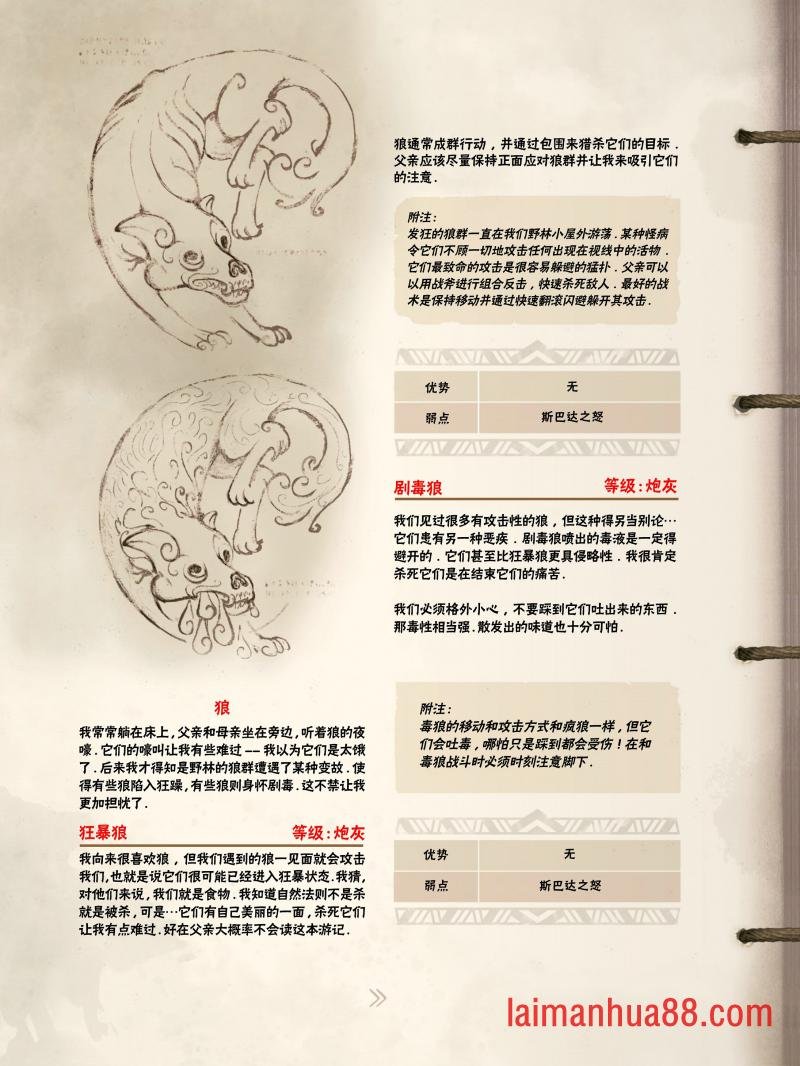 狼
我常常躺在床上,父亲和母亲坐在旁边,听着狼的夜
嚎.它们的嚎叫让我有些难过——我以为它们是太饿
了.后来我才得知是野林的狼群遭遇了某种变故.使
得有些狼陷入狂躁,有些狼则身怀剧毒.这不禁让我
更加担忧了.
狂暴狼 等级:炮灰
我向来很喜欢狼,但我们遇到的狼一见面就会攻击
我们,也就是说它们很可能已经进入狂暴状态.我猜,
对他们来说,我们就是食物.我知道自然法则不是杀
就是被杀,可是…它们有自己美丽的一面,杀死它们
让我有点难过.好在父亲大概率不会读这本游记.
狼通常成群行动,并通过包围来猎杀它们的目标.
父亲应该尽量保持正面应对狼群并让我来吸引它们
的注意.
附注:
发狂的狼群一直在我们野林小屋外游荡.某种怪病
令它们不顾一切地攻击任何出现在视线中的活物.
它们最致命的攻击是很容易躲避的猛扑.父亲可以
以用战斧进行组合反击,快速杀死敌人.最好的战
术是保持移动并通过快速翻滚闪避躲开其攻击.
优势 无
弱点 斯巴达之怒
剧毒狼 等级:炮灰
我们见过很多有攻击性的狼,但这种得另当别论…
它们患有另一种恶疾.剧毒狼喷出的毒液是一定得
避开的.它们甚至比狂暴狼更具侵略性.我很肯定
杀死它们是在结束它们的痛苦.
我们必须格外小心,不要踩到它们吐出来的东西.
那毒性相当强.散发出的味道也十分可怕.
附注:
毒狼的移动和攻击方式和疯狼一样,但它
们会吐毒,哪怕只是踩到都会受伤!在和
毒狼战斗时必须时刻注意脚下.
优势 无
弱点 斯巴达之怒
laimanhua88.com